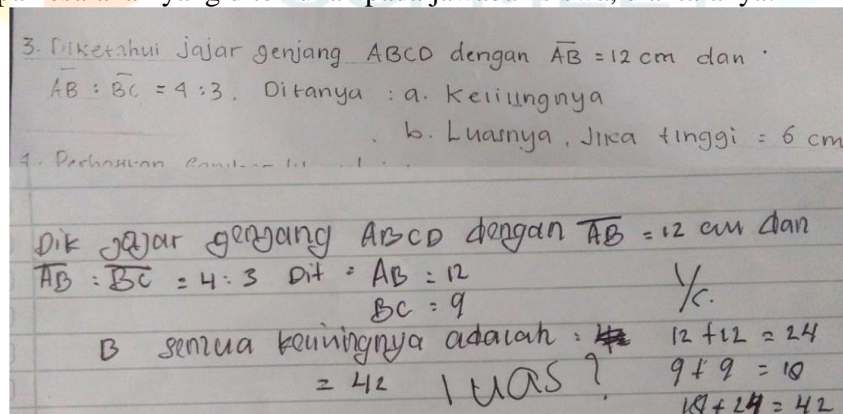 3. Diketahui jajar genjang ABCD dengan AB = 12 cm dan
AB : BC = 4 : 3. Ditanya : a. Kelilingnya
b. Luasnya, Jika tinggi = 6 cm
4. Perhatikan
Dik jajar genjang ABCD dengan AB = 12 cm dan
AB : BC = 4 : 3 Dit : AB = 12
BC = 9
B semua keliningnya adalah :
= 42 luas ?
12 + 12 = 24
9 + 9 = 18
18 + 24 = 42